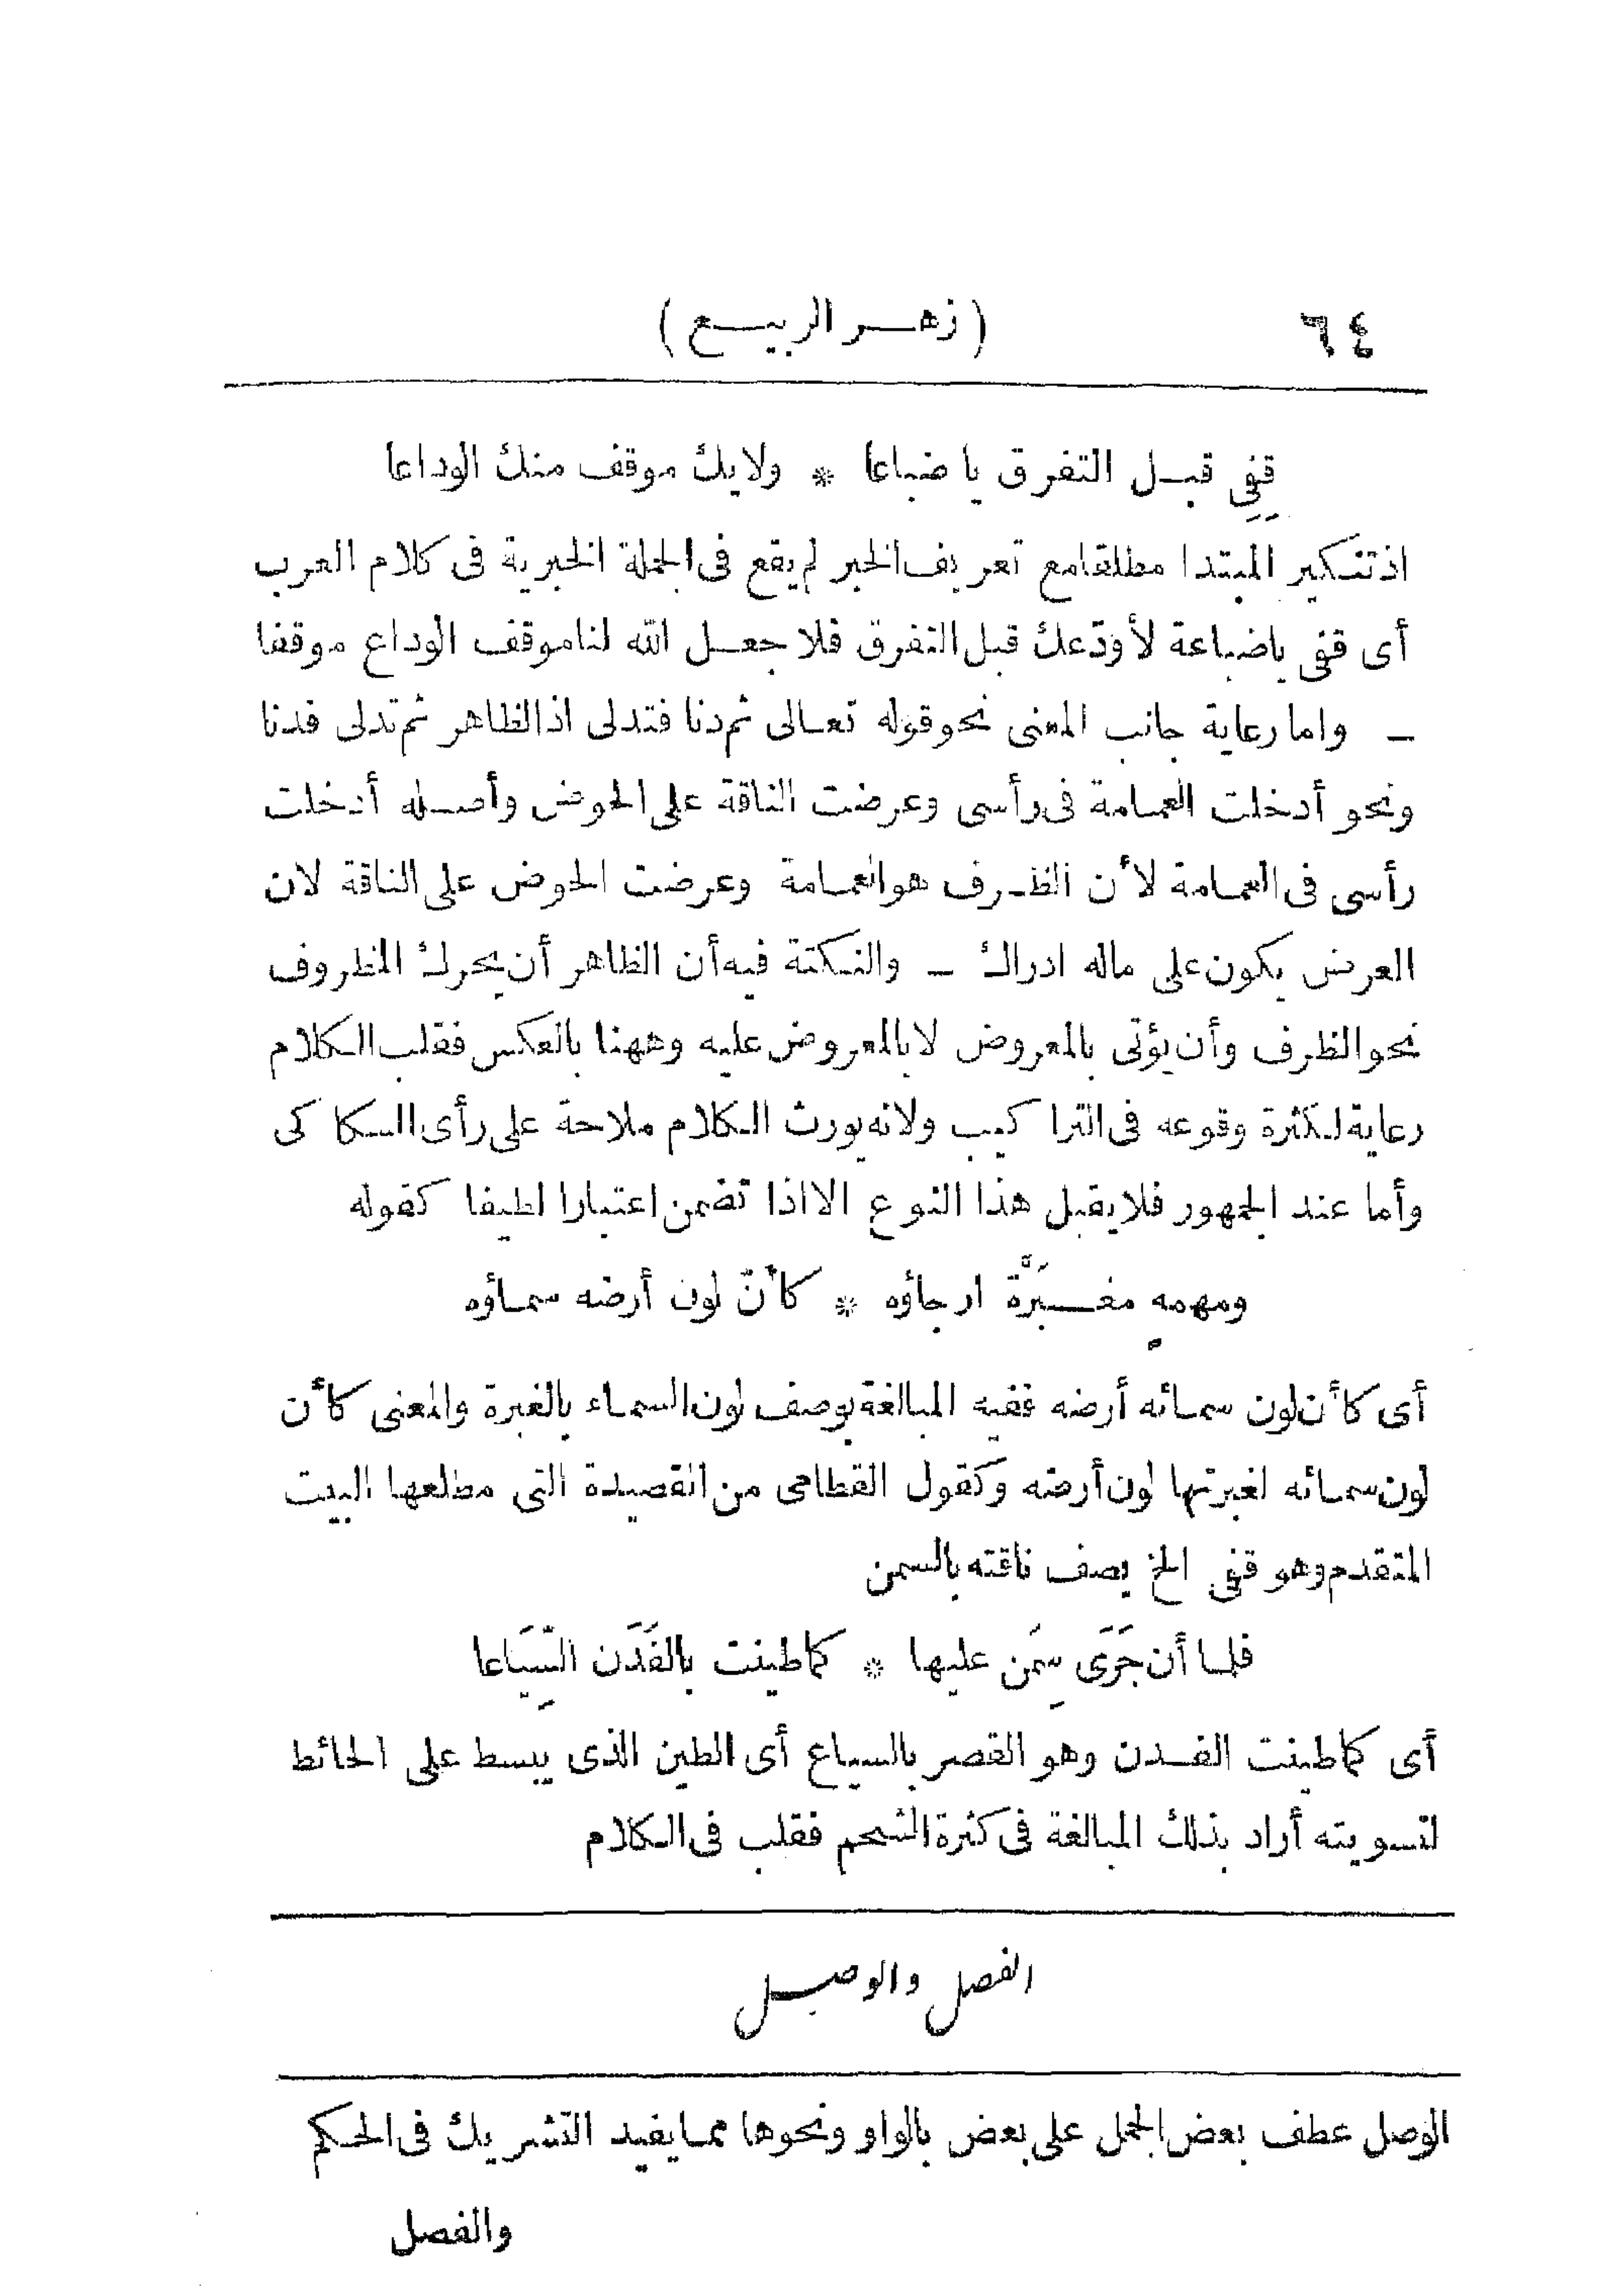 ٦٤ (زهر الربيع)
قِفِي قبل التفرق يا ضباعا * ولا يك موقف منك الوداعا
اذ تنكير المبتدا مطلقا مع تعريف الخبر لم يقع فى الجملة الخبرية فى كلام العرب
أى قفى ياضباعة لأودّعك قبل التفرق فلا جعل الله لنا موقف الوداع موقفا
ـ واما رعاية جانب المعنى نحو قوله تعالى ثم دنا فتدلى اذ الظاهر ثم تدلى فدنا
ونحو أدخلت العمامة فى رأسى وعرضت الناقة على الحوض وأصله أدخلت
رأسى فى العمامة لأن الظرف هو العمامة وعرضت الحوض على الناقة لان
العرض يكون على ماله ادراك ـ والنكتة فيه أن الظاهر أن يحرك المظروف
نحو الظرف وأن يؤتى بالمعروض لا بالمعروض عليه وههنا بالعكس فقلب الكلام
رعاية لكثرة وقوعه فى التراكيب ولانه يورث الكلام ملاحة على رأى السكاكى
وأما عند الجمهور فلا يقبل هذا النوع الا اذا تضمن اعتبارا لطيفا كقوله
ومهمهٍ مغبَرَّة ارجاؤه * كأنّ لون أرضه سماؤه
أى كأن لون سمائه أرضه ففيه المبالغة بوصف لون السماء بالغبرة والمعنى كأن
لون سمائه لغبرتها لون أرضه وكقول القطامى من القصيدة التى مطلعها البيت
المتقدم وهو قفى الخ يصف ناقته بالسمن
فلما أن جَرَى سِمَن عليها * كما طينت بالفَدَن السِّيَاعا
أى كما طينت الفدن وهو القصر بالسياع أى الطين الذى يبسط على الحائط
لتسويته أراد بذلك المبالغة فى كثرة الشحم فقلب فى الكلام
الفصل والوصل
الوصل عطف بعض الجمل على بعض بالواو ونحوها مما يفيد التشريك فى الحكم
والفصل